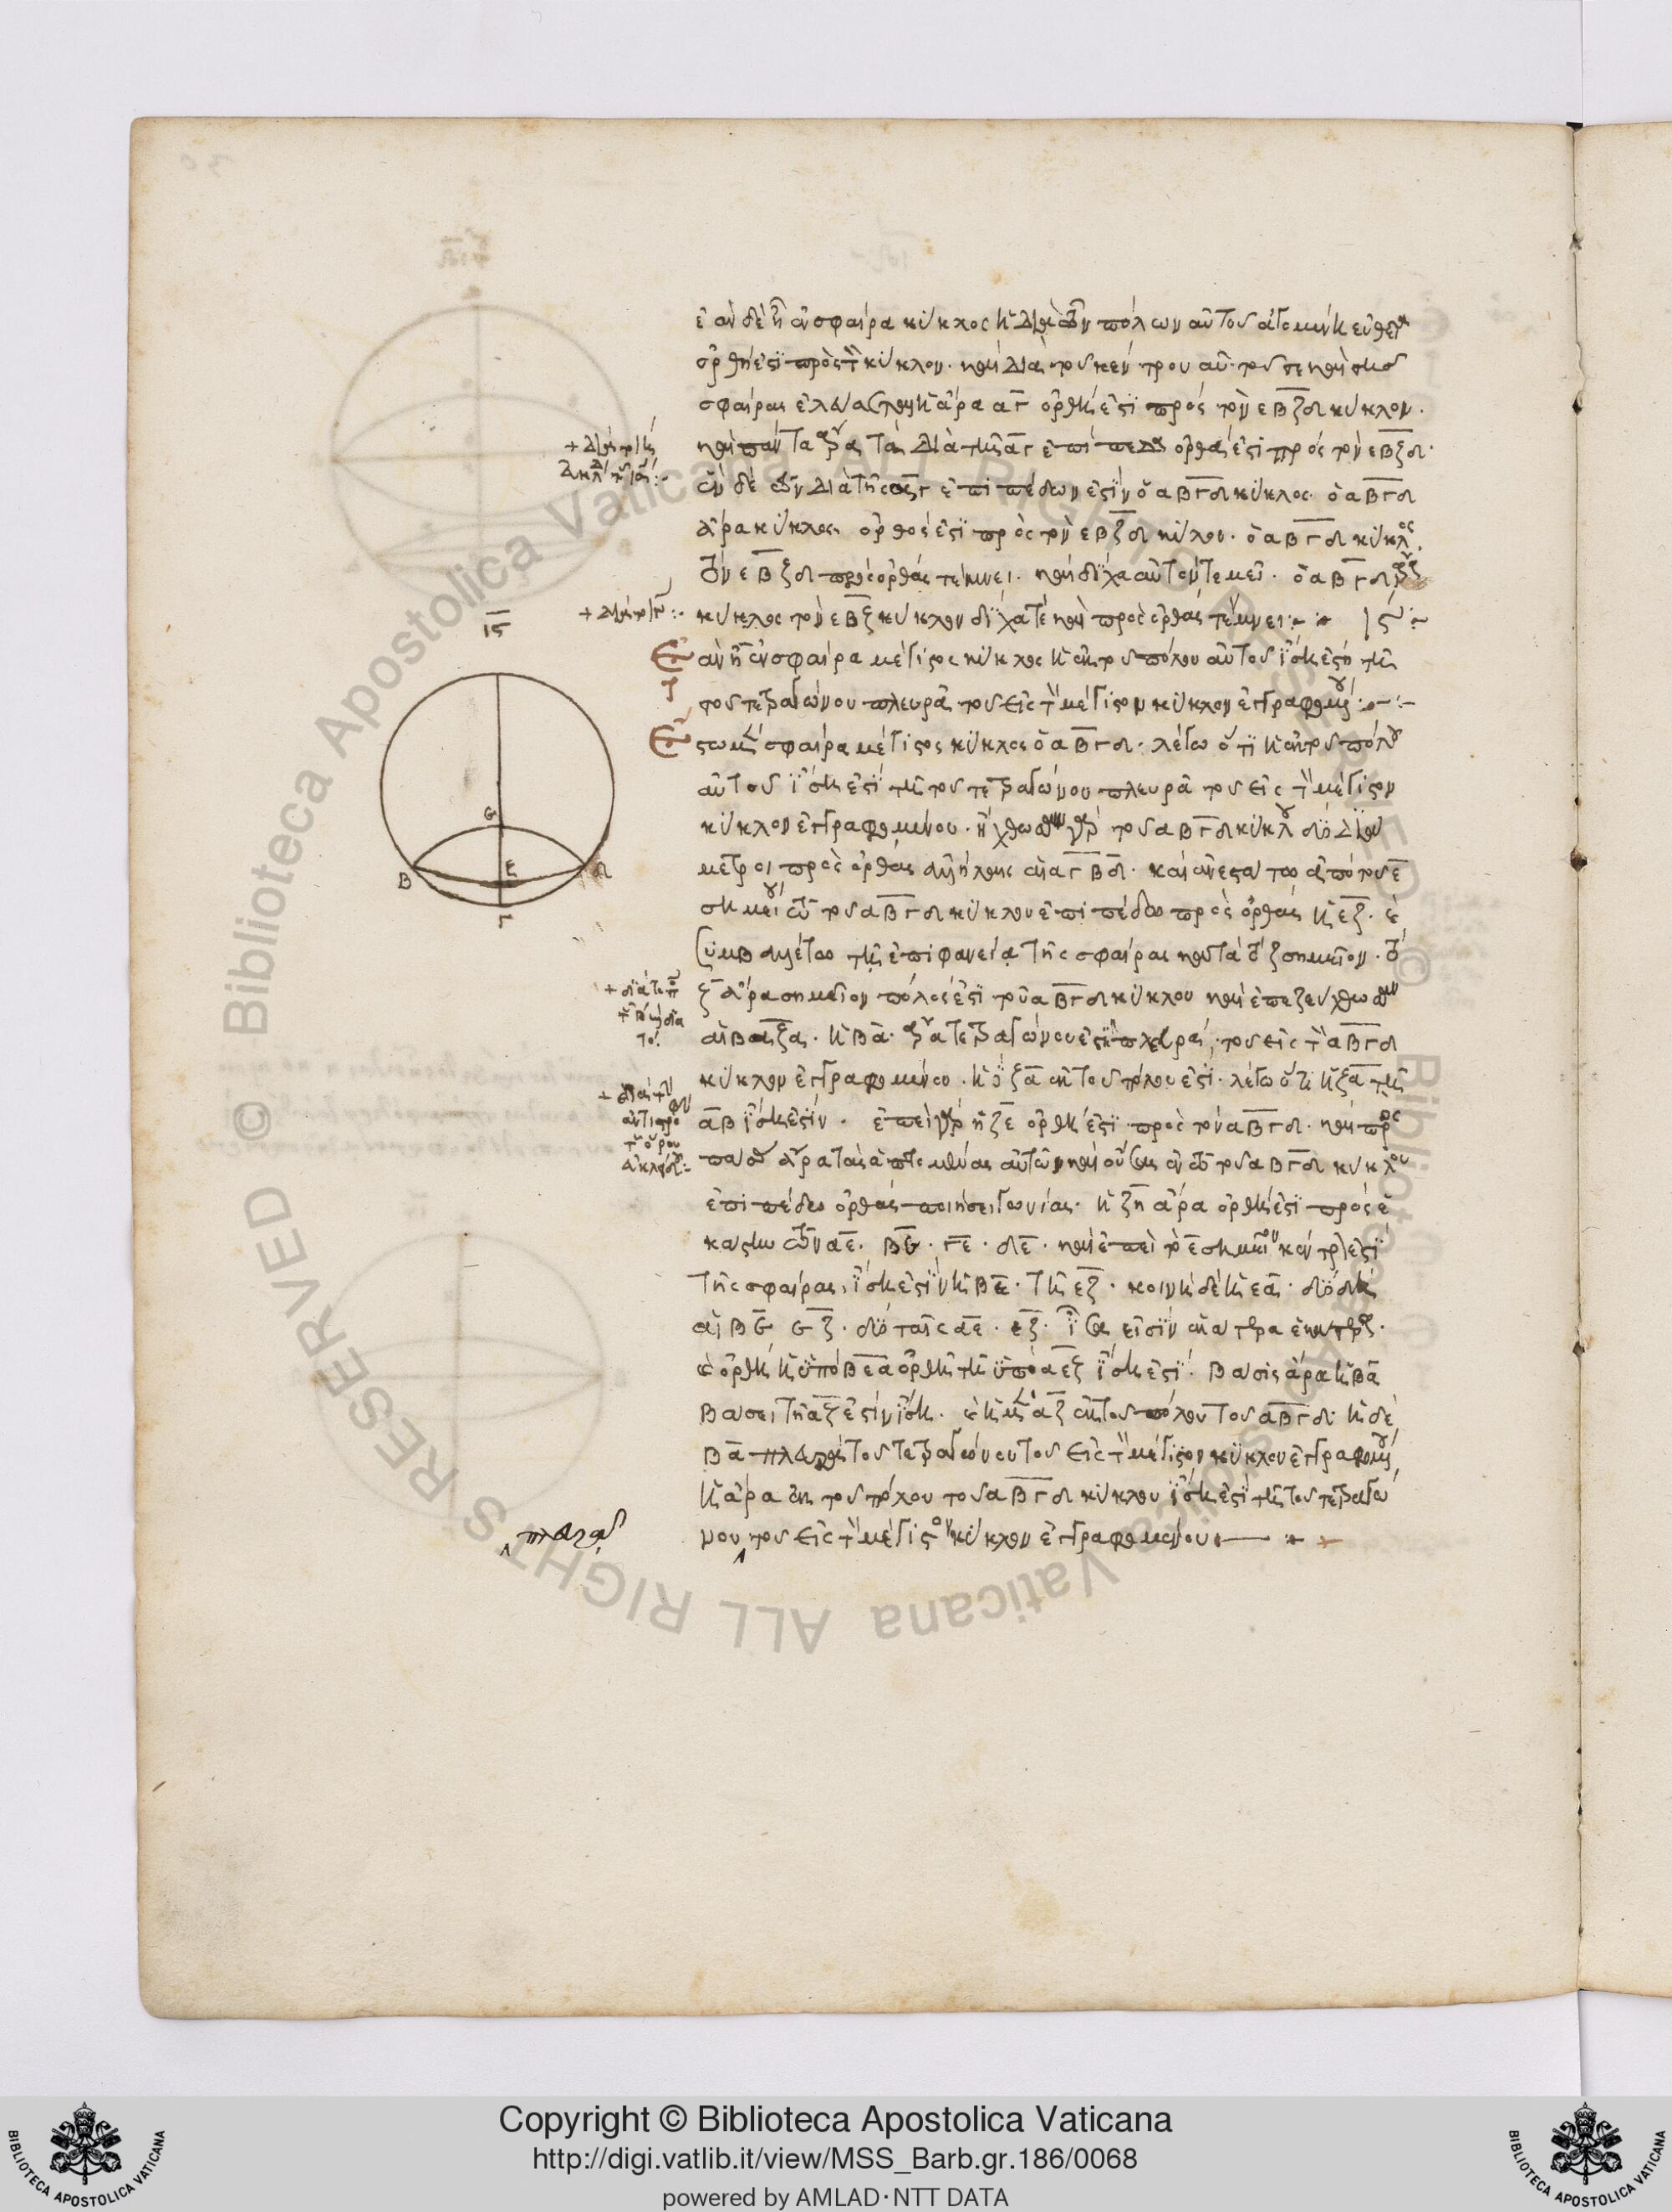 ἐὰν δὲ ᾖ ἐν σφαίρα κύκλος ἡ διὰ τῶν πόλων αὐτοῦ ἀγομένη εὐθεῖα
ὀρθή ἐστι πρὸς τὸν κύκλον. καὶ διὰ τοῦ κέντρου αὐτοῦ τε καὶ τῆς
σφαίρας ἐλεύσεται ἡ ἄρα αγ ὀρθή ἐστι πρὸς τὸν εβζδ κύκλον.
καὶ πάντα ἄρα τὰ διὰ τῆς αγ ἐπίπεδα ὀρθά ἐστι πρὸς τὸν εβζδ.
ἓν δὲ τῶν διὰ τῆς αγ ἐπιπέδων ἐστὶν ὁ αβγδ κύκλος. ὁ αβγδ
ἄρα κύκλος ὀρθός ἐστι πρὸς τὸν εβζδ κύκλον. ὁ αβγδ κύκλος
τὸν εβζδ πρὸς ὀρθὰς τέμνει. καὶ δίχα αὐτὸν τεμεῖ. ὁ αβγδ ἄρα
κύκλος τὸν εβζ κύκλον δίχα τὲ καὶ πρὸς ὀρθὰς τέμνει ις
ις
Ἐὰν ᾖ ἐν σφαίρα μέγιστος κύκλος ἡ ἐκ τοῦ πόλου αὐτοῦ ἴση ἐστὶ τῆ
τοῦ τετραγώνου πλευρᾶ τοῦ εἰς τὸν μέγιστον κύκλον ἐγγραφομένου
Ἔστω ἐν σφαίρα μέγιστος κύκλος ὁ αβγδ. λέγω ὅτι ἡ ἐκ τοῦ πόλου
αὐτοῦ ἴση ἐστὶ τῆ τοῦ τετραγώνου πλευρᾶ τοῦ εἰς τὸν μέγιστον
κύκλον ἐγγραφομένου. ἤχθωσαν γὰρ τοῦ αβγδ κύκλου δύο διά
μετροι πρὸς ὀρθὰς ἀλλήλαις αἱ αγ βδ. καὶ ἀνεστάτω ἀπὸ τοῦ ε
σημείου τῶ τοῦ αβγδ κύκλου ἐπιπέδω πρὸς ὀρθὰς ἡ εζ. καὶ
συμβαλλέτω τῆ ἐπιφανεία τῆς σφαίρας κατὰ τὸ ζ σημεῖον. τὸ
ζ ἄρα σημεῖον πόλος ἐστὶ τοῦ αβγδ κύκλου καὶ ἐπεζεύχθωσαν
αἱ βα ζα. ἡ βα ἄρα τετραγώνου ἐστὶ πλευρά, τοῦ εἰς τὸν αβγδ
κύκλον ἐγγραφομένου. ἡ δὲ ζα ἐκ τοῦ πόλου ἐστί. λέγω ὅτι ἡ ζα τῆ
αβ ἴση ἐστίν. ἐπεὶ γὰρ ἡ ζε ὀρθή ἐστι πρὸς τὸν αβγδ. καὶ πρὸς
πάσας ἄρα τὰς ἁπτομένας αὐτῶν καὶ οὔσας ἐν τῶ τοῦ αβγδ κύκλου
ἐπιπέδω ὀρθὰς ποιήσει γωνίας. ἡ ζη ἄρα ὀρθή ἐστι πρὸς ἑ
κάστην τῶν αε. βε. γε. δε. καὶ ἐπεὶ τὸ ε σημεῖον κέντρον ἐστὶ
τῆς σφαίρας, ἴση ἐστὶν ἡ βε. τῆ εζ. κοινὴ δὲ ἡ εα. δύο δὴ
αἱ βε εζ. δύο ταῖς αε. εζ. ἴσαι εἰσὶν ἑκατέρα ἑκατέρα.
καὶ ὀρθὴ ἡ ὑπὸ βεα ὀρθῆ τῆ ὑπὸ αεζ ἴση ἐστί. βάσις ἄρα ἡ βα
βάσει τῆ αζ ἐστὶν ἴση. καὶ ἡ μὲν αζ ἐκ τοῦ πόλου τοῦ αβγδ. ἡ δὲ
βα πλευρὰ τοῦ τετραγώνου τοῦ εἰς τὸν μέγιστον κύκλον ἐγγραφομένου
ἡ ἄρα ἐκ τοῦ πόλου τοῦ αβγδ κύκλου ἴση ἐστὶ τῆ τοῦ τετραγώ
νου τοῦ εἰς τὸν μέγιστον κύκλον ἐγγραφομένου
πλευρᾶ
Β
Ε
Δ
Γ
Copyright © Biblioteca Apostolica Vaticana
http://digi.vatlib.it/view/MSS_Barb.gr.186/0068
powered by AMLAD·NTT DATA
BIBLIOTECA APOSTOLICA VATICANA
BIBLIOTECA APOSTOLICA VATICANA
© Biblioteca Apostolica Vaticana ALL RIGHTS RESERVED
© Biblioteca Apostolica Vaticana ALL RIGHTS RESERVED